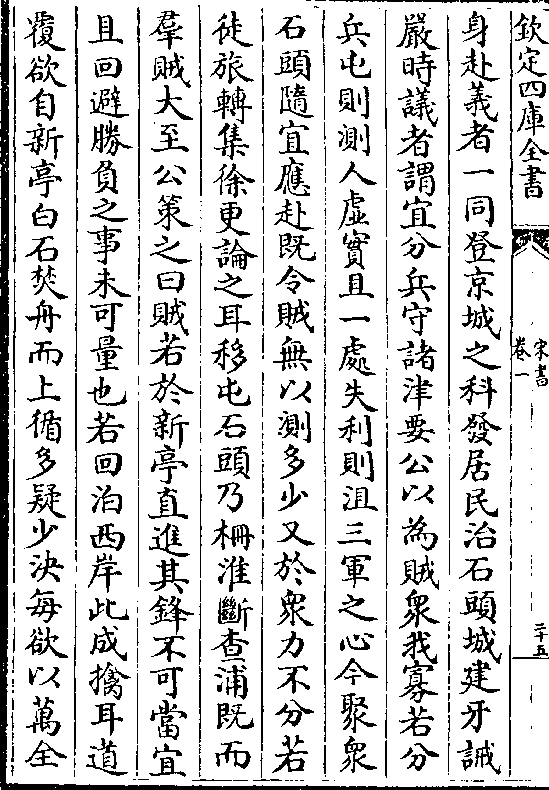 欽定四庫全書
宋書
卷一
二十五
身赴義者一同登京城之科發居民治石頭城建牙誡
嚴時議者謂宜分兵守諸津要公以為賊衆我寡若分
兵屯則測人虛實且一處失利則沮三軍之心今聚衆
石頭隨宜應赴既令賊無以測多少又於衆力不分若
徒旅轉集徐更論之耳移屯石頭乃柵淮斷查浦既而
羣賊大至公策之曰賊若於新亭直進其鋒不可當宜
且回避勝負之事未可量也若回泊西岸此成擒耳道
覆欲自新亭白石焚舟而上循多疑少決每欲以萬全